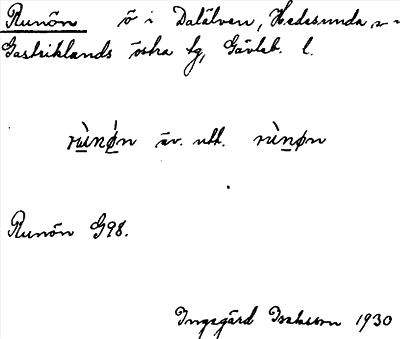 Runön ö i Dalälven, Hedesunda,
Gästriklands östra tg, Gävleb. l.
rùnø̀n äv. utt. rùnøn
Runön G98.
Ingegärd Isaksson 1930